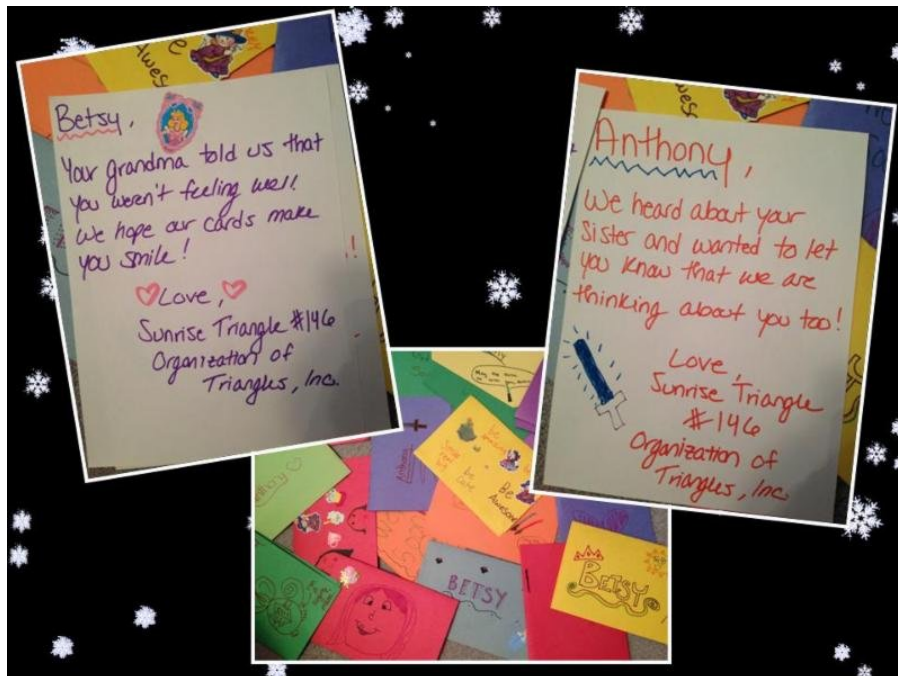 Betsy,
Your grandma told us that
you weren't feeling well.
We hope our cards make
you smile!
Love,
Sunrise Triangle #146
Organization of
Triangles, Inc.
Anthony,
We heard about your
sister and wanted to let
you know that we are
thinking about you too!
Love,
Sunrise Triangle
#146
Organization of
Triangles, Inc.
Awesome
be
Be
Awesome
Anthony
BETSY
BETSY